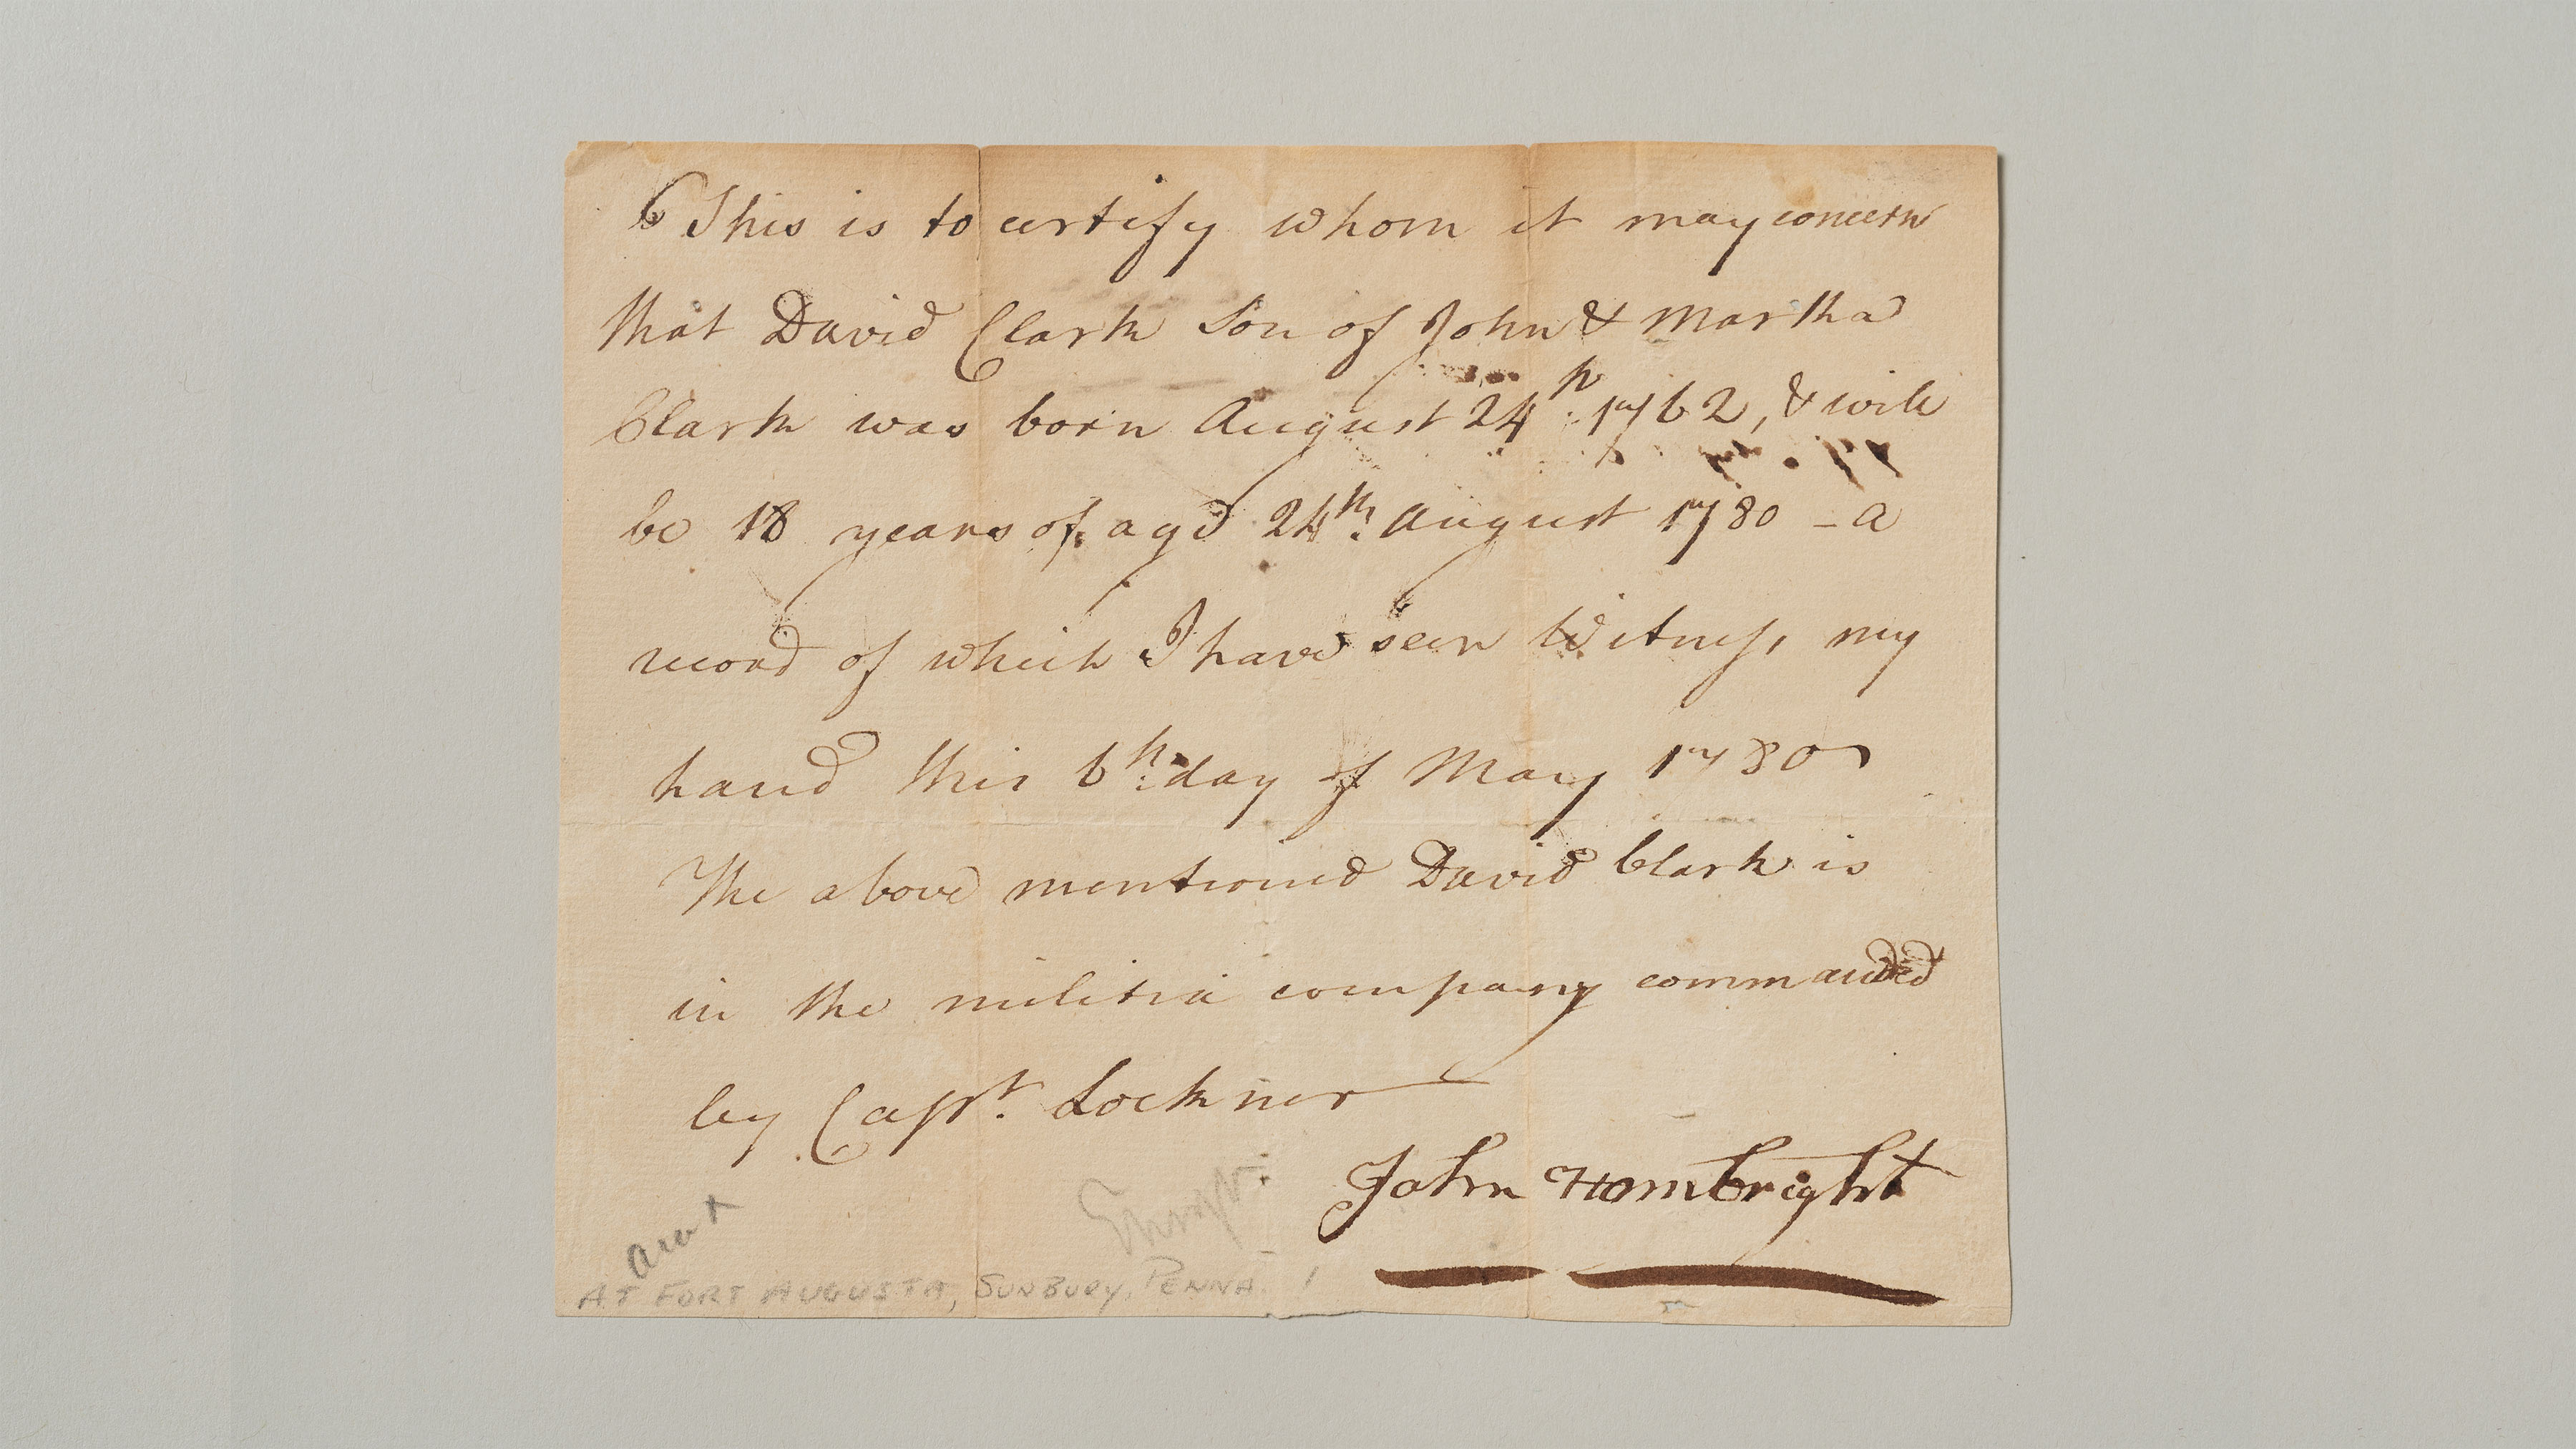 This is to certify whom it may concern
that David Clark Son of John & Martha
Clark was born August 24th 1762, & will
be 18 years of age 24th August 1780 - a
record of which I have seen Witness my
hand this 6th day of May 1780
The above mentioned David Clark is
in the militia company commanded
by Capt. Lockner
John Hambright
AT FORT AUGUSTA, SUNBURY, PENNA